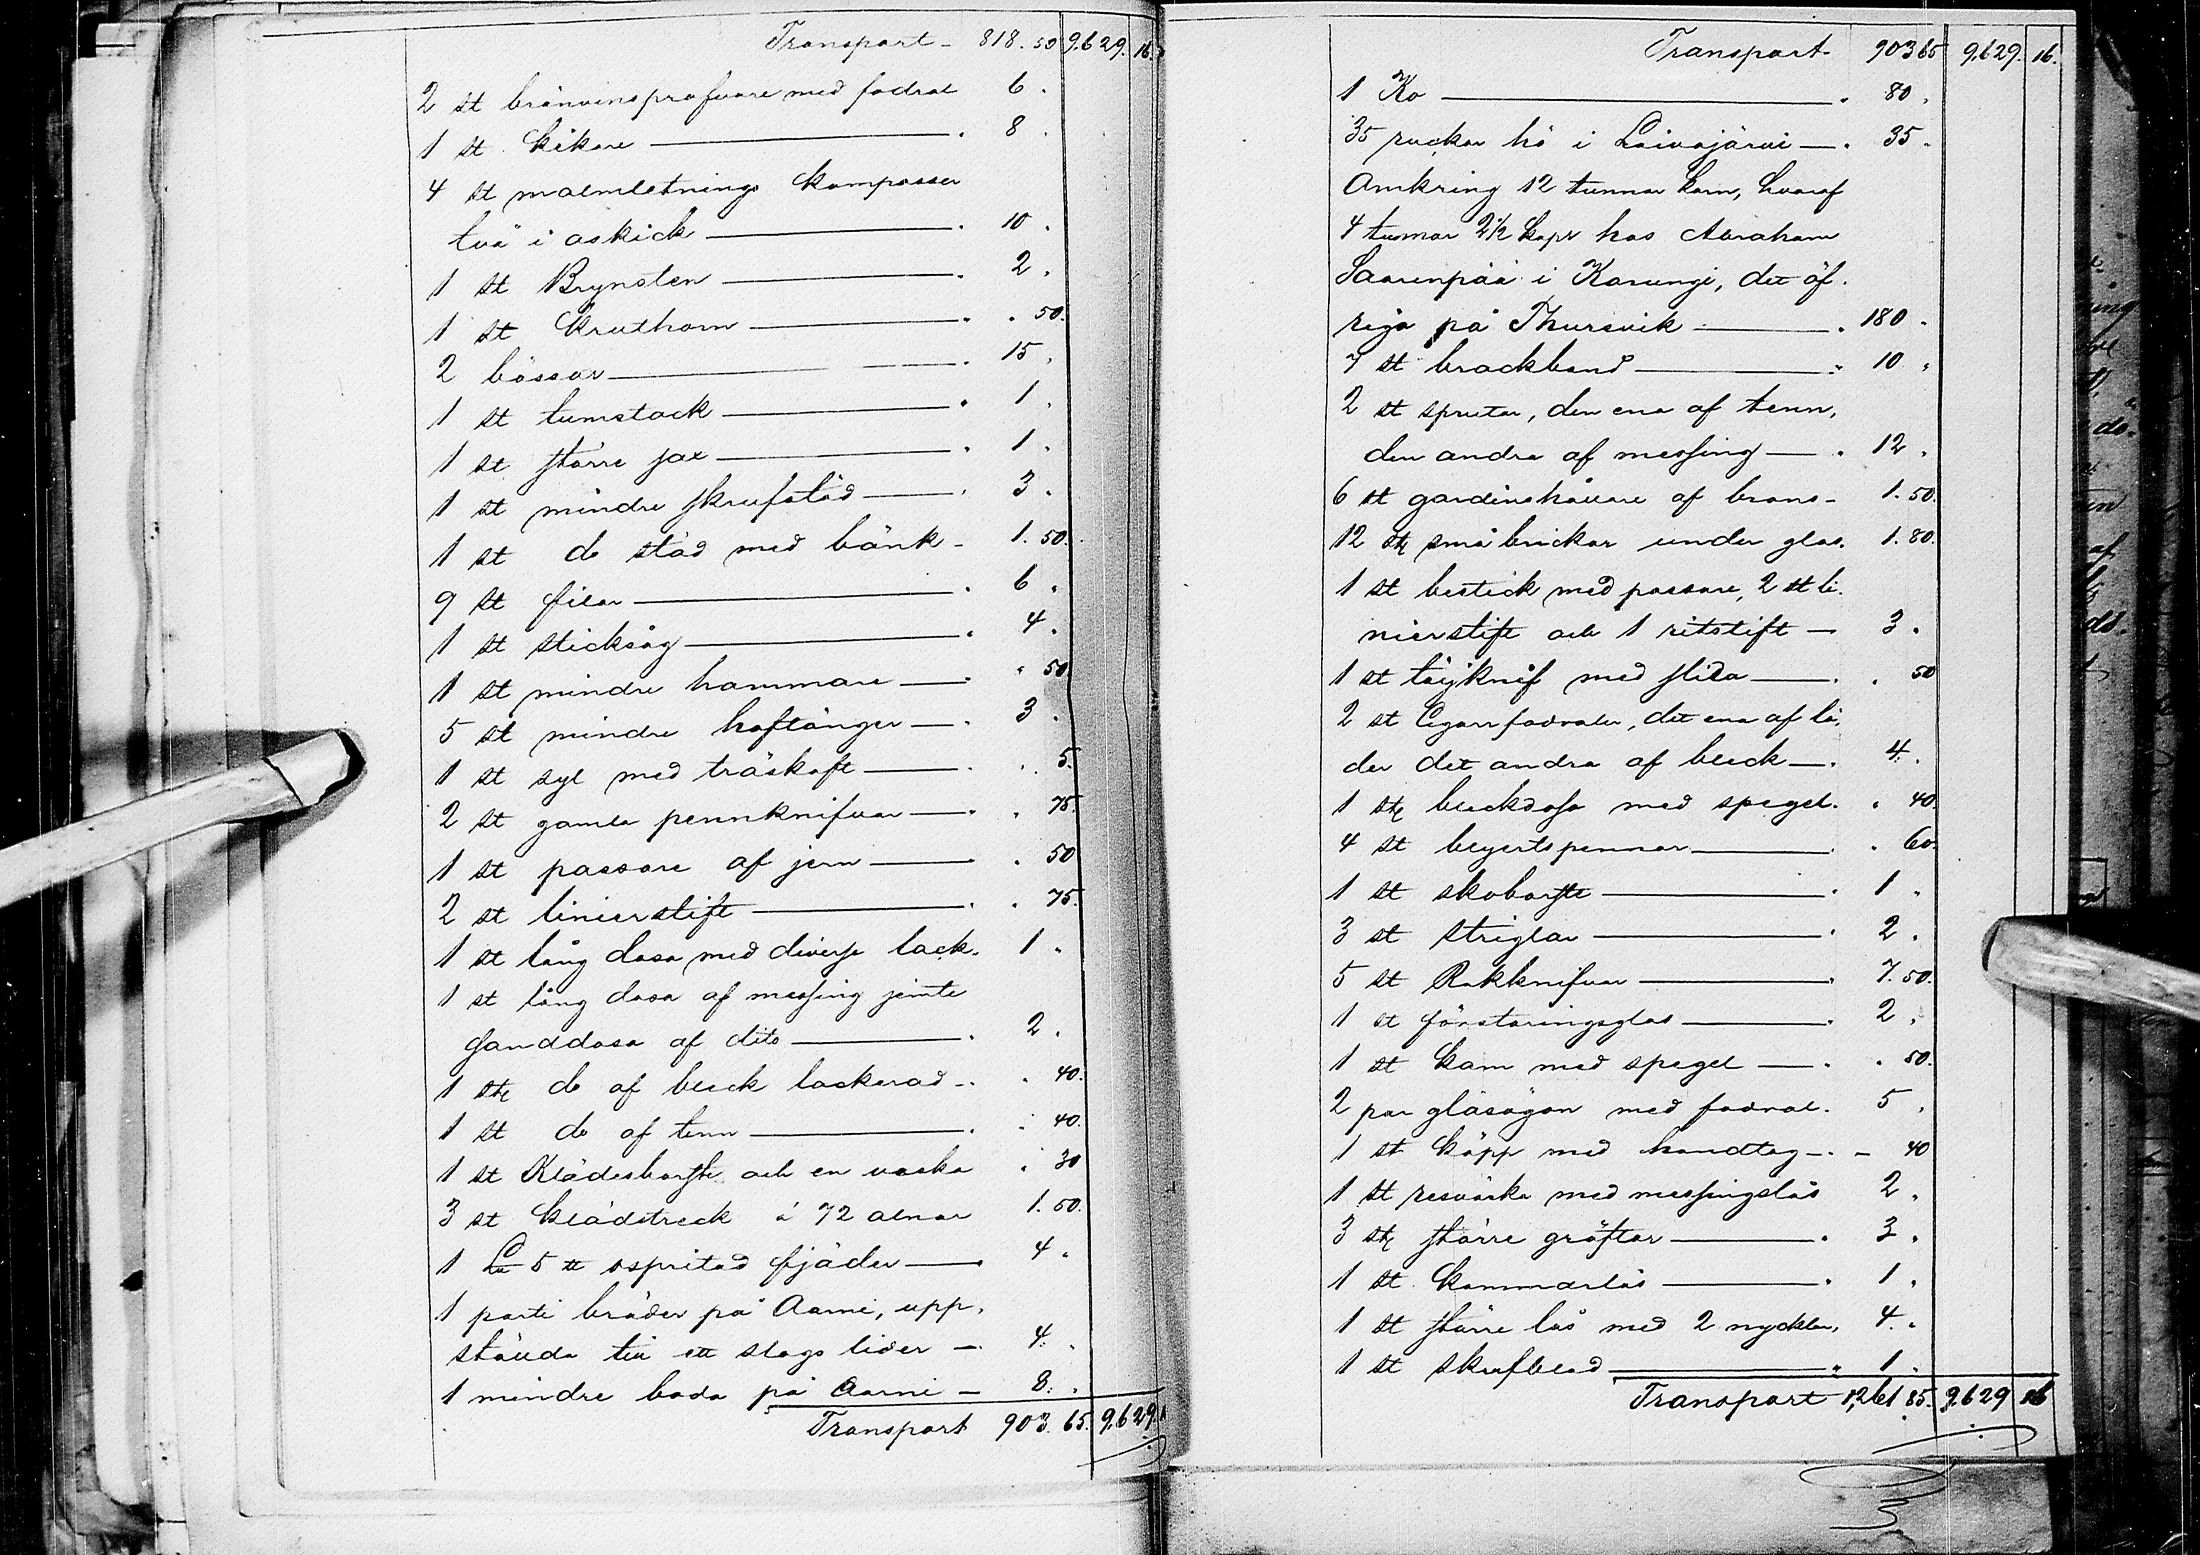 Transport - 818. 50 9,629. 16.
2 st bränvinsprofvare med fodral 6.
1 st kikare 8.
4 st malmletnings kompasser
två i oskick 10.
1 st Brynsten 2.
1 st Kruthorn 50.
2 bössor 15.
1 st tumstock 1.
1 st större sax 1.
1 st mindre skrufstäd 3.
1 st do städ med bänk - 1.50.
9 st filar 6.
1 st sticksåg 4.
1 st mindre hammare 50
5 st mindre hoftänger 3.
1 st syl med träskaft 5.
2 st gamla pennknifvar 75.
1 st passare af jern 50
2 st linierstift 75.
1 st lång dosa med diverse lack. 1.
1 st lång dosa af messing jemte
sanddosa af dito 2.
1 st do af bleck lackerad 40.
1 st do af tenn 40.
1 st Klädesborste och en vaska 30
3 st klädstreck à 72 alnar 1.50.
1 L℔ 5 ℔ ospritad fjäder 4.
1 parti bräder på Aarni, upp-
stälda till ett slags lider 4.
1 mindre boda på Aarni 8.
Transport 903.65. 9,629.
Transport 903 65 9,629. 16.
1 Ko 80.
35 ruckor hö i Loivajärvi 35.
Omkring 12 tunnor korn, hvaraf
4 tunnor 2 1/2 kapr hos Abraham
Saarenpää i Karungi, det öf-
riga på Thursvik 180.
7 st brackband 10.
2 st sprutor, den ena af tenn,
den andra af messing 12.
6 st gardinshållare af brons - 1.50.
12 st små brickor under glas. 1.80.
1 st bestick med passare, 2 st li-
nierstift och 1 ritstift 3.
1 st täljknif med slida 50
2 st Cigarrfodraler, det ena af lä-
der det andra af bleck 4.
1 st bleckdosa med spegel. 40.
4 st blyertspennor 60.
1 st skoborste 1.
3 st striglar 2.
5 st Rakknifvar 7.50.
1 st förstoringsglas 2.
1 st kam med spegel 50.
2 par glasögon med fodral. 5.
1 st käpp med handtag - 40
1 st resväska med messingslås 2.
3 st större gröftar 3.
1 st kammarlås 1.
1 st större lås med 2 nycklar, 4.
1 st skrufblad 1.
Transport 1,261 85. 9,629 16